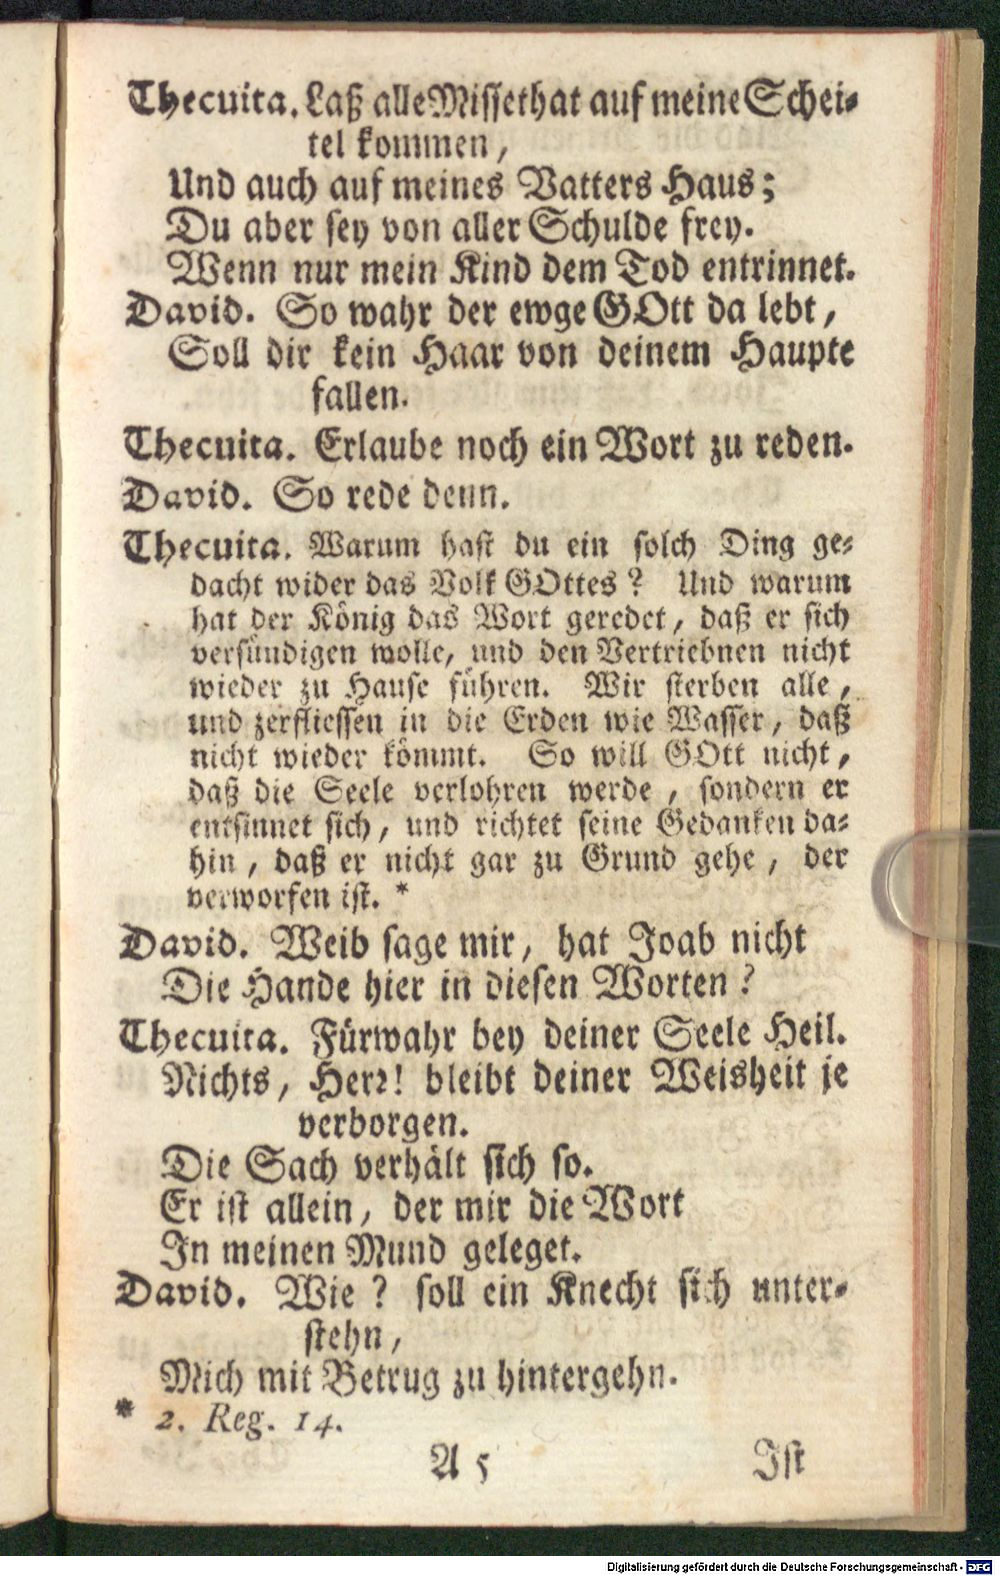 Thecuita. Laß alle Missethat auf meine Schei-
tel kommen,
Und auch auf meines Vatters Haus;
Du aber sey von aller Schulde frey.
Wenn nur mein Kind dem Tod entrinnet.
David. So wahr der ewge GOtt da lebt,
Soll dir kein Haar von deinem Haupte
fallen.
Thecuita. Erlaube noch ein Wort zu reden.
David. So rede denn.
Thecuita. Warum hast du ein solch Ding ge-
dacht wider das Volk GOttes? Und warum
hat der König das Wort geredet, daß er sich
versündigen wolle, und den Vertriebnen nicht
wieder zu Hause führen. Wir sterben alle,
und zerfliessen in die Erden wie Wasser, daß
nicht wieder kömmt. So will GOtt nicht,
daß die Seele verlohren werde, sondern er
entsinnet sich, und richtet seine Gedanken da-
hin, daß er nicht gar zu Grund gehe, der
verworfen ist. *
David. Weib sage mir, hat Joab nicht
Die Hande hier in diesen Worten?
Thecuita. Fürwahr bey deiner Seele Heil.
Nichts, Herr! bleibt deiner Weisheit je
verborgen.
Die Sach verhält sich so.
Er ist allein, der mir die Wort
In meinen Mund geleget.
David. Wie? soll ein Knecht sich unter-
stehn,
Mich mit Betrug zu hintergehn.
* 2. Reg. 14.
A 5 Ist
Digitalisierung gefördert durch die Deutsche Forschungsgemeinschaft - DFG